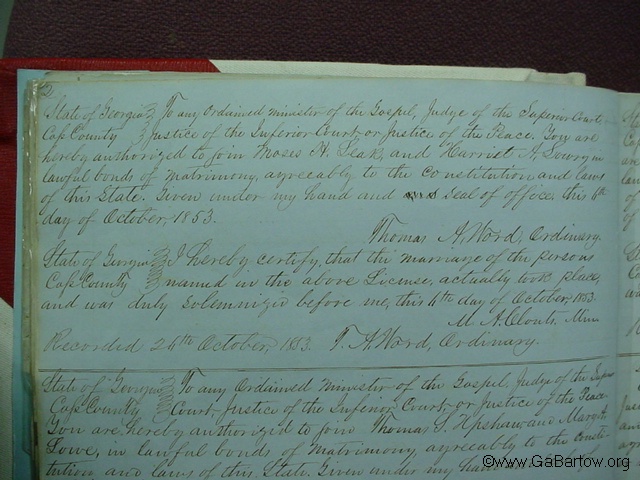 State of Georgia } To any Ordained minister of the Gospel, Judge of the Superior Court
Cass County } Justice of the Inferior Court, or Justice of the Peace. You are
hereby authorized to join Moses H. Leak, and Harriet A. Lowry in
lawful bonds of matrimony, agreeably to the constitution and laws
of this State. Given under my hand and Seal of office, this 6th
day of October, 1853.
Thomas A. Word, Ordinary.
State of Georgia } I hereby certify, that the marriage of the persons
Cass County } named in the above License, actually took place,
and was duly Solemnized before me, this day of October, 1853.
M. A. Clouts, Min
Recorded 26th October, 1853. T. A. Word, Ordinary.
State of Georgia } To any Ordained Minister of the Gospel, Judge of the Super
Cass County } Court, Justice of the Inferior Court, or Justice of the Peace
You are hereby authorized to join Thomas S. Upshaw and
Lowe, in lawful bonds of matrimony, agreeably to the Consti-
tution and laws of this State. Given under my hand
©www.GaBartow.org